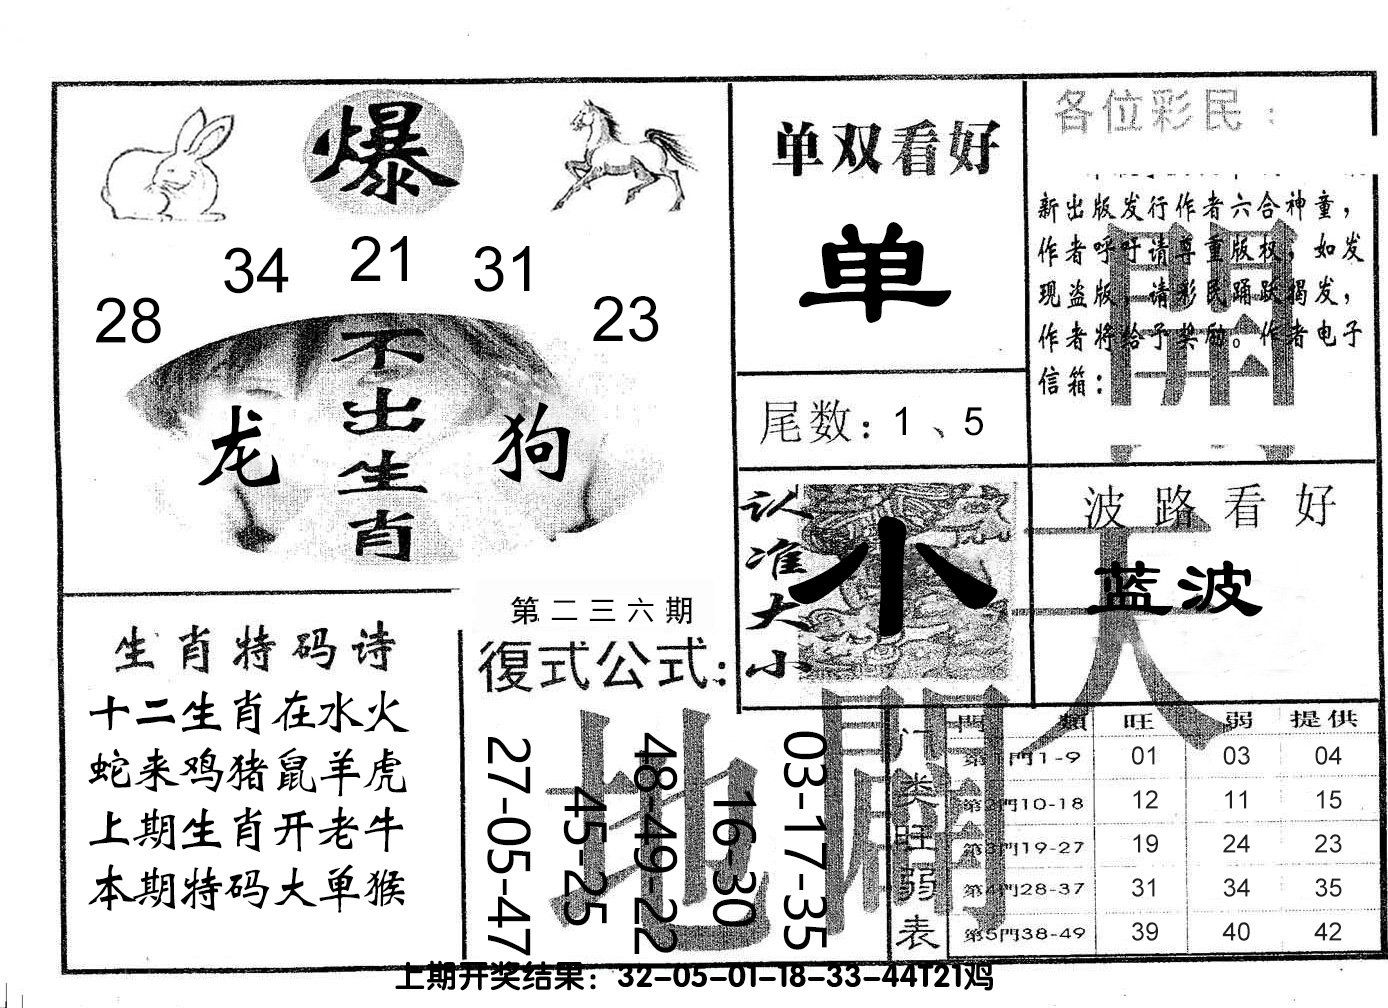 爆
28 34 21 31 23
不出生肖
龙 狗
单双看好
单
尾数：1、5
各位彩民：
新出版发行作者六合神童，
作者呼吁请尊重版权，如发
现盗版，请彩民踊跃揭发，
作者将给予奖励。作者电子
信箱：
認准大小
小
波路看好
蓝波
天
開
地
開
生肖特码诗
十二生肖在水火
蛇来鸡猪鼠羊虎
上期生肖开老牛
本期特码大单猴
第二三六期
復式公式：
27-05-47
45-25
48-49-22
16-30
03-17-35
门类旺弱表
門類 旺 弱 提供
第1門1-9 01 03 04
第2門10-18 12 11 15
第3門19-27 19 24 23
第4門28-37 31 34 35
第5門38-49 39 40 42
上期开奖结果：32-05-01-18-33-44T21鸡